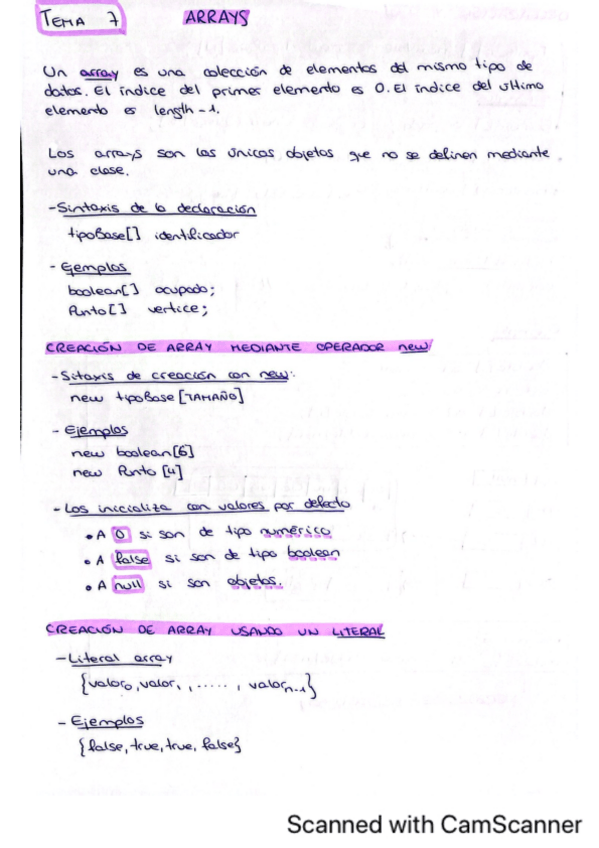 TEMA 7 ARRAYS
Un array es una colección de elementos del mismo tipo de
datos. El índice del primer elemento es 0. El índice del ultimo
elemento es length-1.
Los arrays son los únicos objetos que no se definen mediante
una clase.
- Sintaxis de la declaración
tipoBase[] identificador
- Ejemplos
boolean[] ocupado;
Punto[] vertice;
CREACIÓN DE ARRAY MEDIANTE OPERADOR new
- Sitaxis de creacción con new:
new tipoBase [TAMAÑO]
- Ejemplos
new boolean[6]
new Punto [4]
- Los inicializa con valores por defecto
• A 0 si son de tipo numérico
• A false si son de tipo boolean
• A null si son objetos.
CREACIÓN DE ARRAY USANDO UN LITERAL
- Literal array
{valor0, valor1, ......, valorn-1}
- Ejemplos
{false, true, true, false}
Scanned with CamScanner